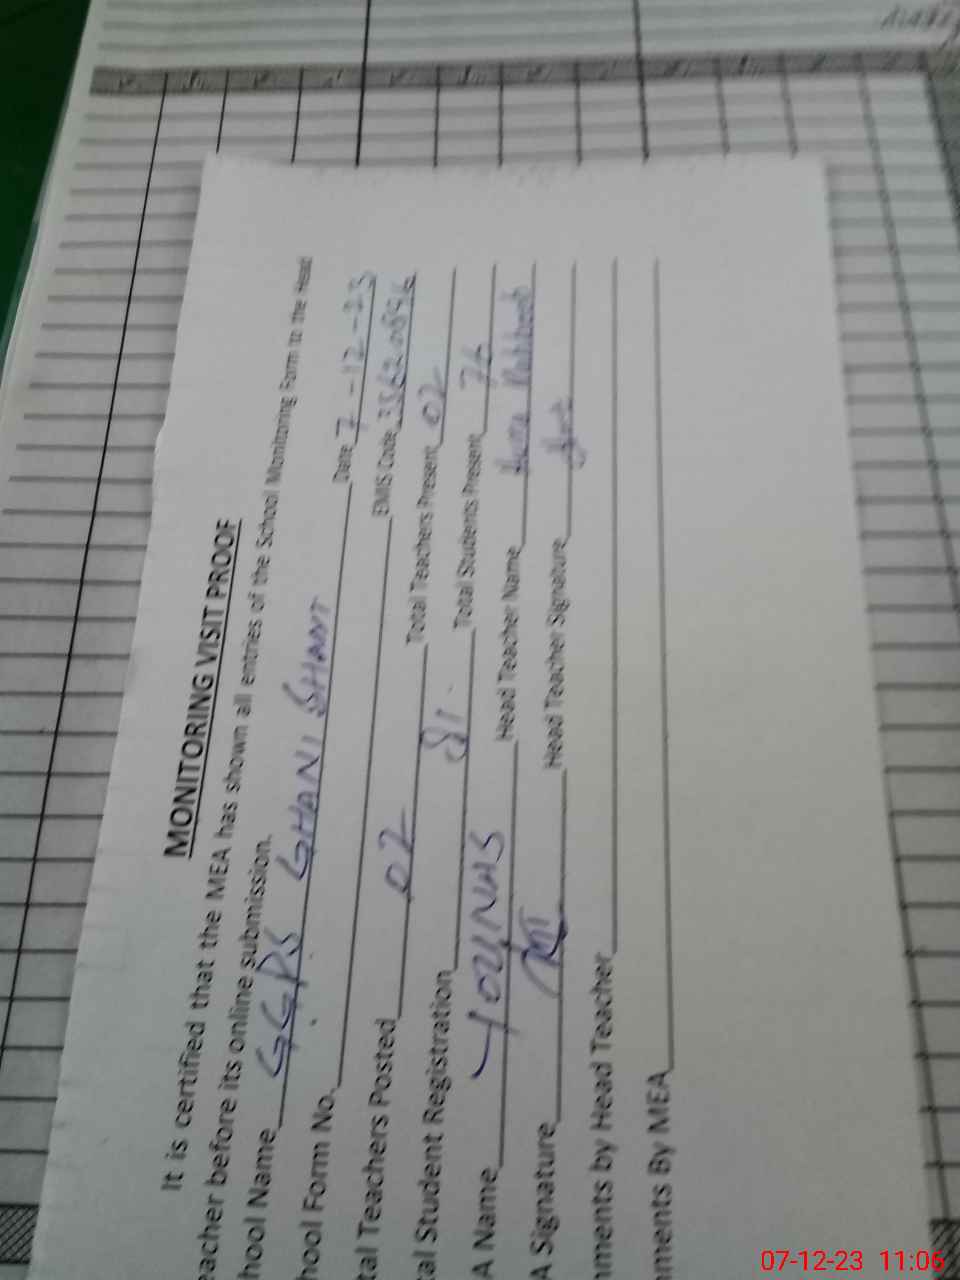 MONITORING VISIT PROOF
It is certified that the MEA has shown all entries of the School Monitoring Form to the Head
eacher before its online submission.
hool Name GGPS GHANI SHAMT Date 7-12-23
hool Form No. EMIS Code
tal Teachers Posted 02 Total Teachers Present 02
tal Student Registration 81. Total Students Present 76
A Name YOUNAS Head Teacher Name
A Signature Head Teacher Signature
nments by Head Teacher
nments By MEA
07-12-23 11:06